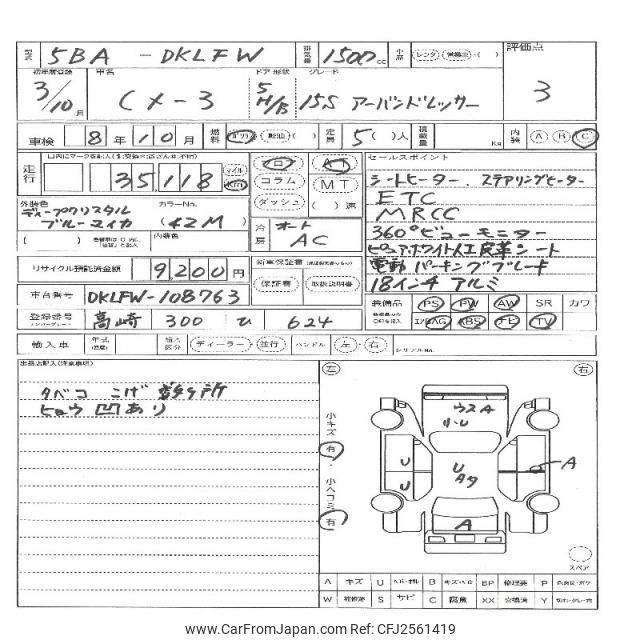 5BA - DKLFW 排気量 1500 cc レンタ 評価点
初年度登録 車名 ドア 形状 グレード
3/10月 CX-3 5 H/B 15S アーバンドレッサー 3
車検 8年10月 燃料 定員 5( )人 積載量 Kg 内装 A B C
走行 35,118 マイル Km フロア AT セールスポイント
コラム MT シートヒーター ステアリングヒーター
ダッシュ ( )速 ETC
外装色 カラーNo. MRCC
ディープクリスタルブルーマイカ (42M) 冷房 オート AC 360°ビューモニター
( ) 内装色 ピュアホワイト人工皮革シート
リサイクル預託済金額 9,200円 新車保証書 電動パーキングブレーキ
保証書 取扱説明書 18インチアルミ
車台番号 DKLFW-108763 装備品 PS PW AW SR カワ
登録番号 高崎 300 ひ 624 エアBAG ABS ナビ TV
輸入車 年式 輸入区分 ディーラー・並行 ハンドル 左・右 シリアルNo.
出品店記入(注意事項) 左 右
タバコ こげ
ヒョウ凹あり
小キズ 有・小ヘコミ 有
ウスA
小U
U
U
U
A
A
スペア
A キズ U B BP 修理跡 P
W S サビ C 腐食 XX 交換済 Y
www.CarFromJapan.com - CFJ2561419